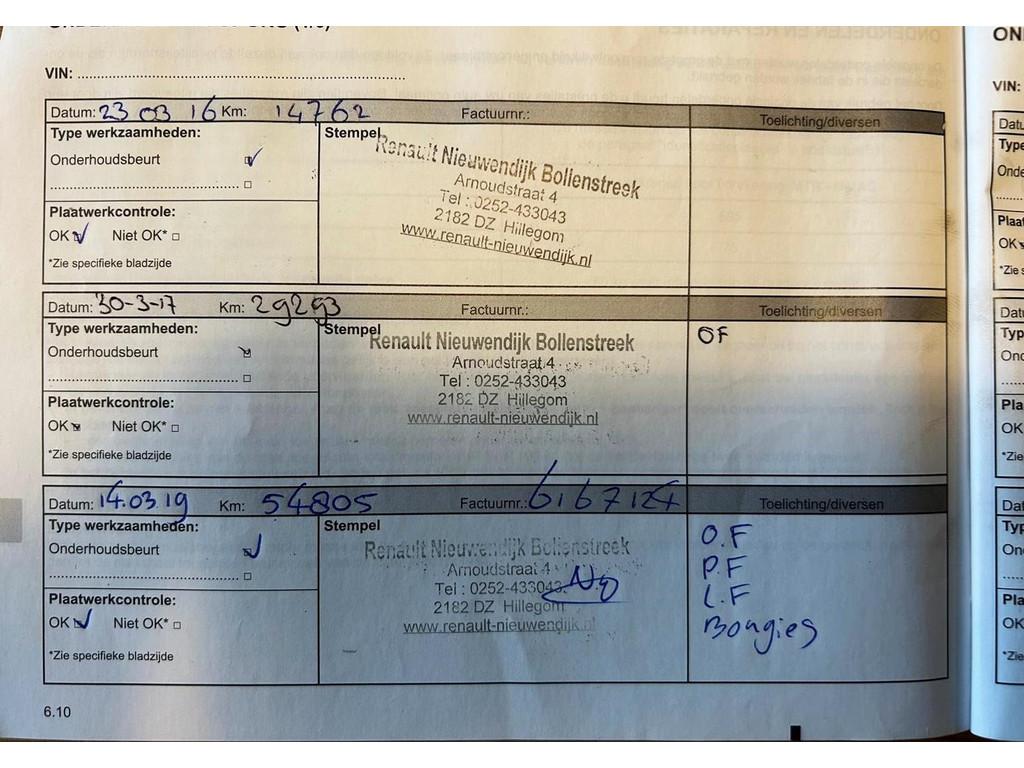 VIN:
Datum: 23 03 16 Km: 14762 Factuurnr.: Toelichting/diversen
Type werkzaamheden:
Onderhoudsbeurt
Plaatwerkcontrole:
OK Niet OK*
*Zie specifieke bladzijde
Stempel
Renault Nieuwendijk Bollenstreek
Arnoudstraat 4
Tel : 0252-433043
2182 DZ Hillegom
www.renault-nieuwendijk.nl
Datum: 30-3-17 Km: 29293 Factuurnr.: Toelichting/diversen
Type werkzaamheden:
Onderhoudsbeurt
Plaatwerkcontrole:
OK Niet OK*
*Zie specifieke bladzijde
Stempel
Renault Nieuwendijk Bollenstreek
Arnoudstraat 4
Tel : 0252-433043
2182 DZ Hillegom
www.renault-nieuwendijk.nl
OF
Datum: 14.03.19 Km: 54805 Factuurnr.: Toelichting/diversen
Type werkzaamheden:
Onderhoudsbeurt
Plaatwerkcontrole:
OK Niet OK*
*Zie specifieke bladzijde
Stempel
Renault Nieuwendijk Bollenstreek
Arnoudstraat 4
Tel : 0252-433043
2182 DZ Hillegom
www.renault-nieuwendijk.nl
O.F
P.F
L.F
Bougies
6.10
VIN: